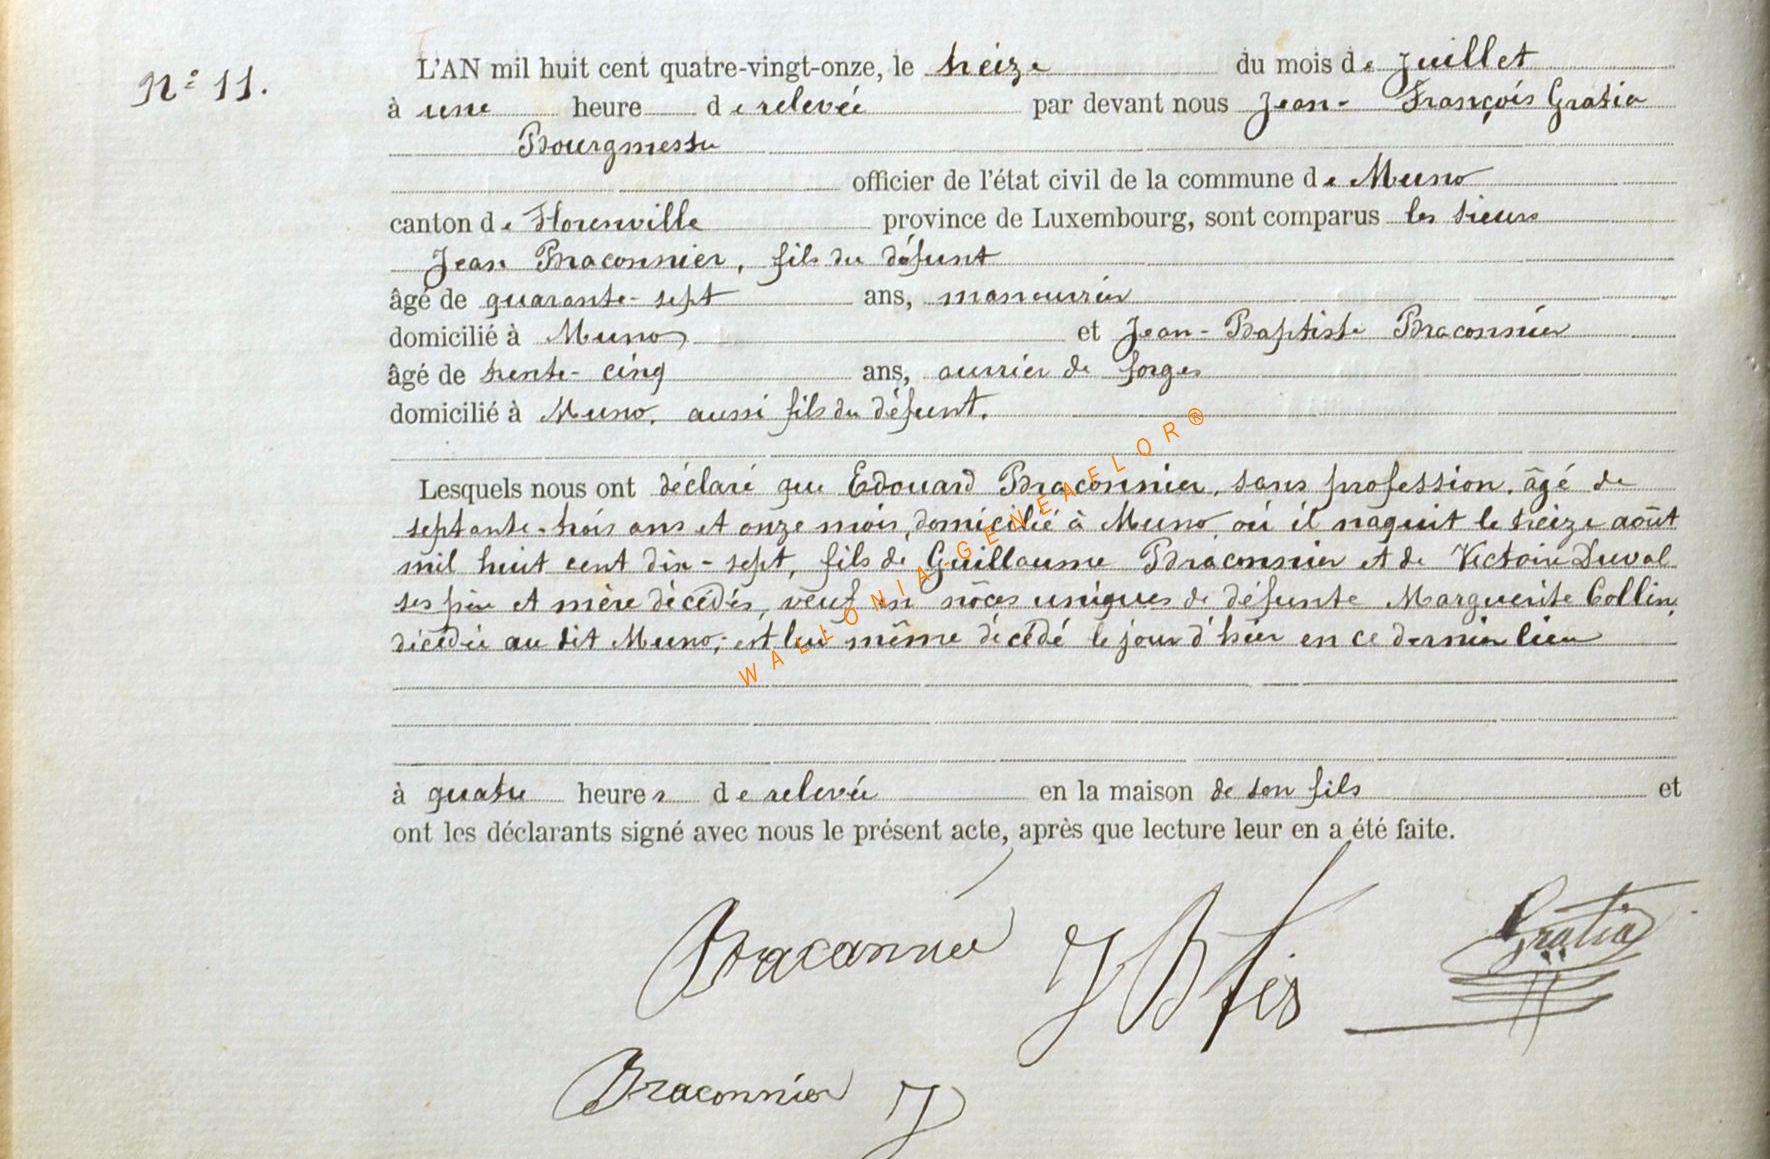 N° 11.
L'AN mil huit cent quatre-vingt-onze, le treize du mois de Juillet
à une heure de relevée par devant nous Jean-François Gratia
Bourgmestre
officier de l'état civil de la commune de Muno
canton de Florenville province de Luxembourg, sont comparus les sieurs
Jean Braconnier, fils du défunt
âgé de quarante-sept ans, manouvrier
domicilié à Muno et Jean-Baptiste Braconnier
âgé de trente-cinq ans, ouvrier de forges
domicilié à Muno, aussi fils du défunt.
Lesquels nous ont déclaré que Edouard Braconnier, sans profession, âgé de
septante-trois ans et onze mois, domicilié à Muno où il naquit le treize août
mil huit cent dix-sept, fils de Guillaume Braconnier et de Victoire Duval
ses père et mère décédés, veuf en nôces uniques de défunte Marguerite Collin,
décédée au dit Muno; est lui même décédé le jour d'hier en ce dernier lieu
à quatre heures de relevée en la maison de son fils et
ont les déclarants signé avec nous le présent acte, après que lecture leur en a été faite.
Braconnier J B fils Gratia
Braconnier J
WALLONIA-GENEAFLOR®